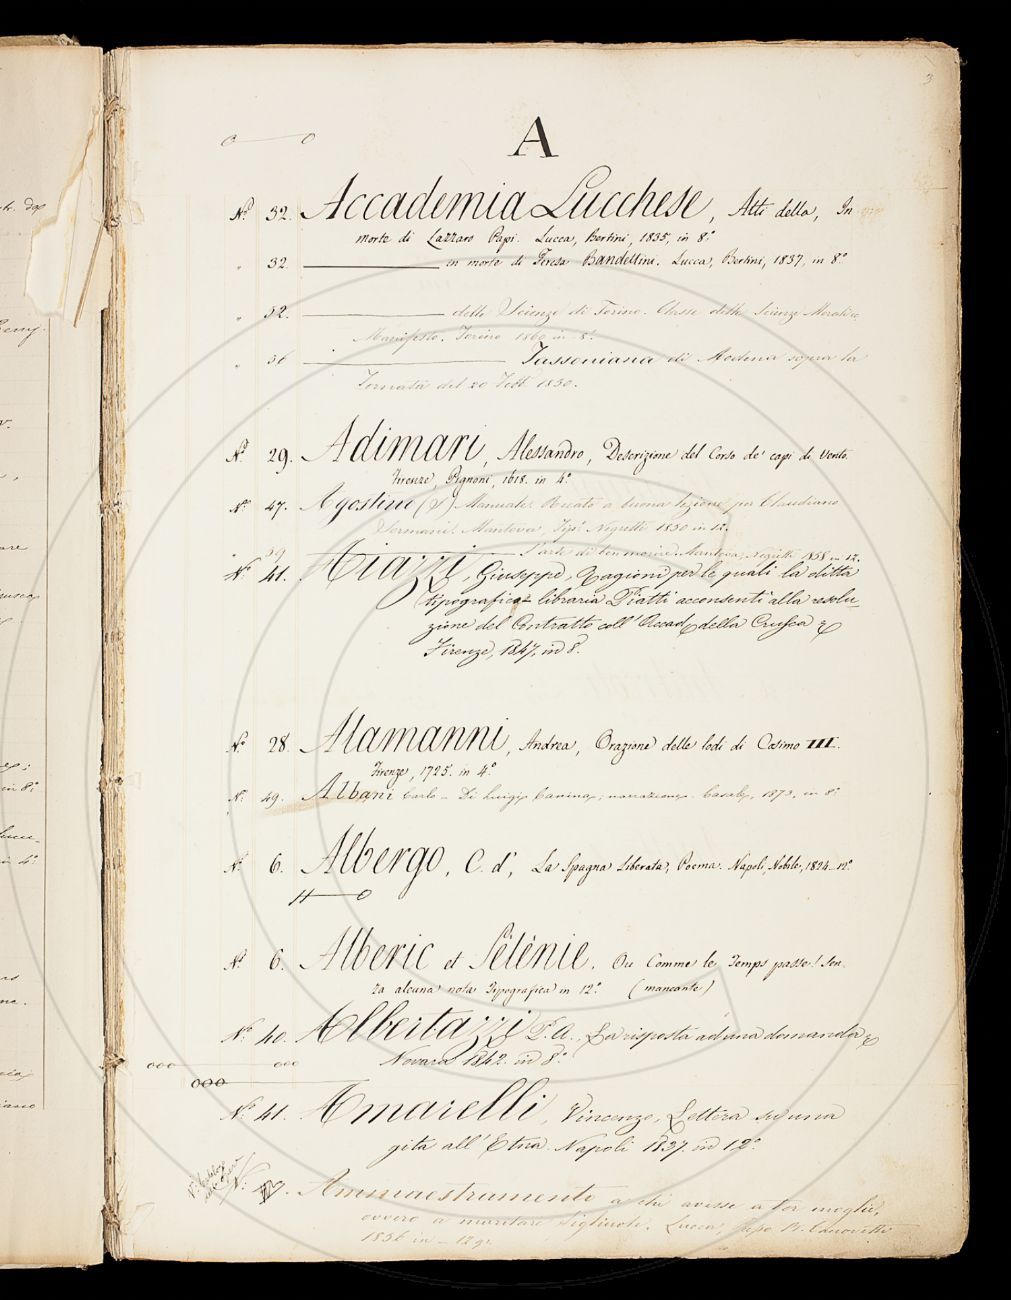 3
A
N.º 32. Accademia Lucchese, Atti della, In
morte di Lazzaro Papi. Lucca, Bertini, 1835, in 8.º
" 32. in morte di Teresa Bandettini. Lucca, Bertini, 1837, in 8.º
" 52. delle Scienze di Torino. Classe delle Scienze Morali
Manifesto. Torino 1860 in 8.º
" 56 Tassoniana di Modena sopra la
Tornata del 20 1850.
N.º 29. Adimari, Alessandro, Descrizione del Corso de' capi di Vento.
Firenze, Pignoni, 1618. in 4.º
N.º 47. Agostino (S) Manuale. Recato a buona lezione per Claudiano
Mantova, Tip. Negretti 1850 in 12.
" 59 L'arte di ben morire Mantova, Negretti 1858 in 12.
N.º 41. Aiazzi, Giuseppe, Ragioni per le quali la ditta
tipografica libraria Piatti acconsentì alla resolu-
zione del Contratto coll' Accad. della Crusca &
Firenze, 1847, in 8.
N.º 28. Alamanni, Andrea, Orazione delle lodi di Cosimo III.
Firenze, 1725. in 4.º
N. 49. Albani Carlo - Di Luigi Canina, narrazione. Casale, 1873, in 8.º
N. 6. Albergo, C. d', La Spagna Liberata, Poema. Napoli, Nobile, 1824. 12.º
N.º 6. Alberic et Sélénie. Ou Comme le Temps passe! Sen-
za alcuna nota Tipografica in 12.º (mancante)
N.º 40. Albertazzi P. A., La risposta ad una domanda &
Novara 1842. in 8.º
ooo ooo
ooo
N.º 41. Amarelli, Vincenzo, Lettera su una
gita all' Etna. Napoli 1837. in 12.º
N. Ammaestramento a chi avesse a tor moglie,
ovvero a maritare figliuole. Lucca, Tipo B. Canovetti
1856 in - 12.º